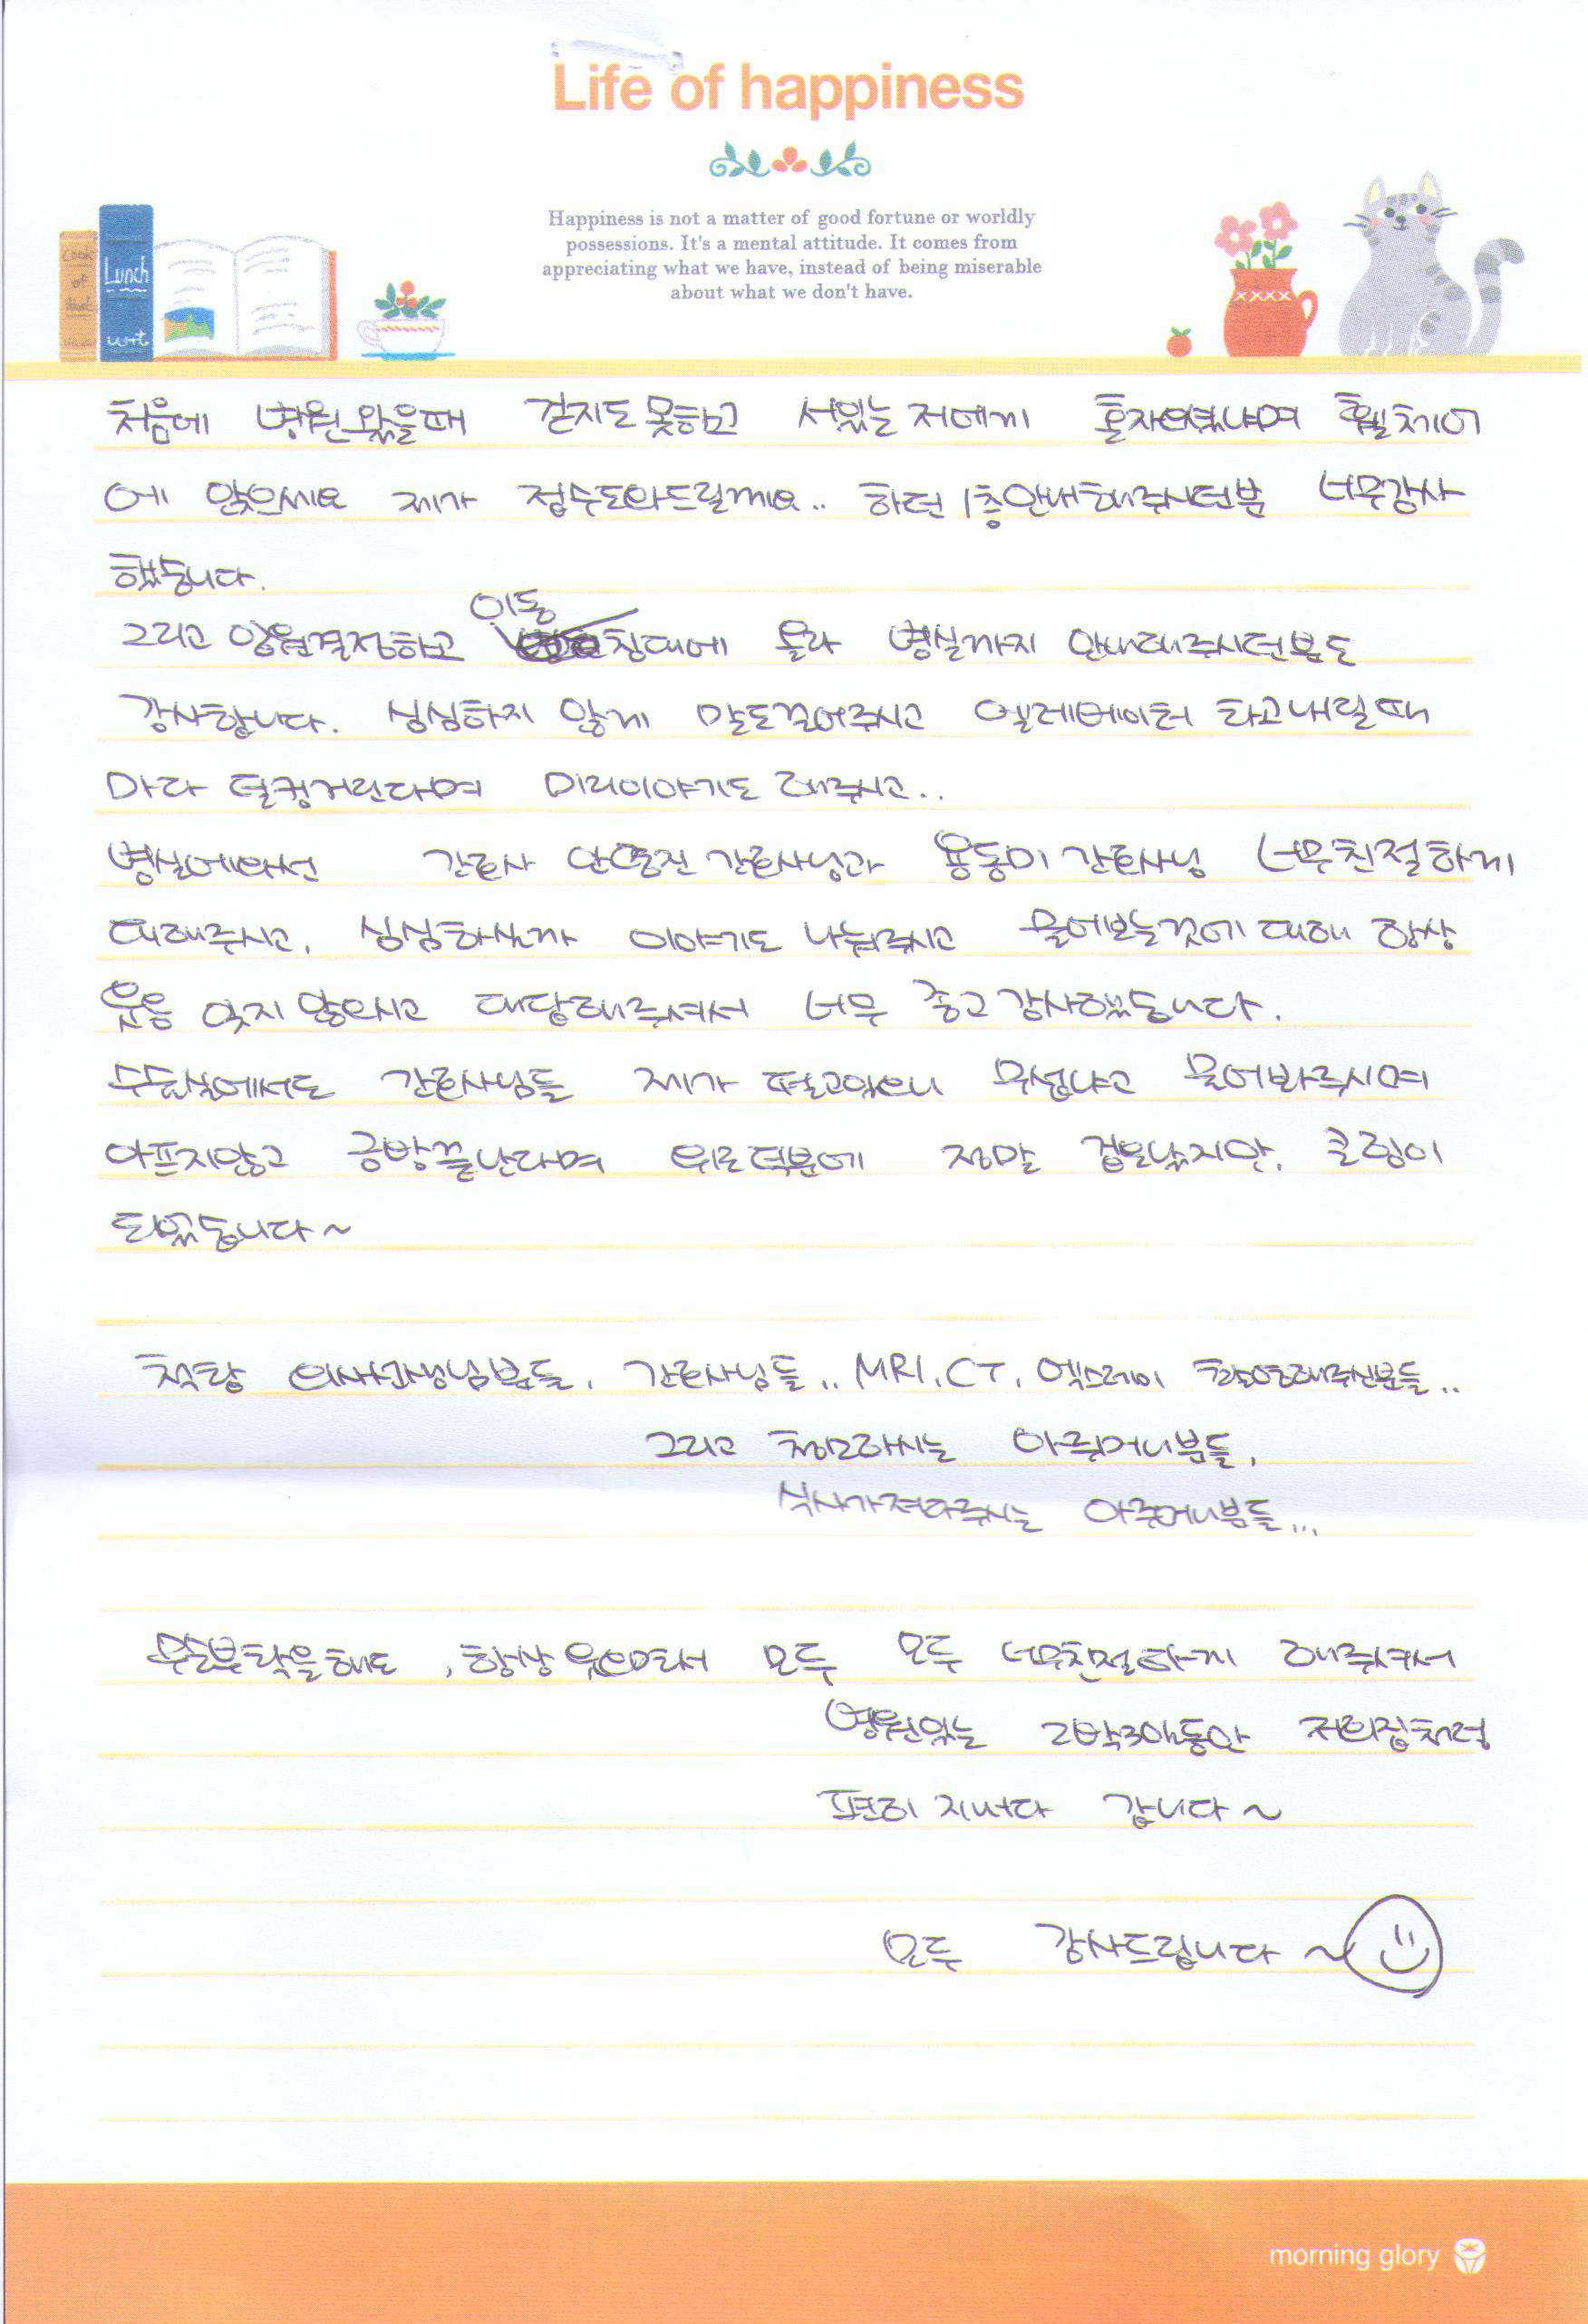 Life of happiness
Happiness is not a matter of good fortune or worldly
possessions. It's a mental attitude. It comes from
appreciating what we have, instead of being miserable
about what we don't have.
Cook
of
Lunch
처음에 병원왔을때 걷지도못하고 서있는저에게 혼자오셨냐며 휠체어
에 앉으세요 제가 접수도와드릴께요.. 하던 1층안내해주시던분 너무감사
했습니다.
이동
그리고 입원결정하고 침대에 올라 병실까지 안내해주시던분도
감사합니다. 심심하지 않게 말도걸어주시고 엘레베이터 타고내릴때
마다 덜컹거린다며 미리이야기도 해주시고..
병실에와선 간호사 안명진 간호사님과 용동미 간호사님 너무친절하게
대해주시고, 심심하실까 이야기도 나눠주시고 물어보는것에 대해 항상
웃음 잊지 않으시고 대답해주셔서 너무 좋고 감사했습니다.
수술실에서도 간호사님들 제가 떨고있으니 무섭냐고 물어봐주시며
아프지않고 금방끝난다며 위로덕분에 정말 겁은났지만, 힐링이
되었습니다~
척탑 의사선생님분들, 간호사님들.. MRI, CT, 엑스레이 촬영해주신분들..
그리고 청소하시는 아주머니분들,
식사가져다주시는 아주머니분들...
무슨부탁을해도, 항상 웃으면서 모두 모두 너무친절하게 해주셔서
병원있는 2박3일동안 저희집처럼
편히 지내다 갑니다~
모두 감사드립니다~
morning glory